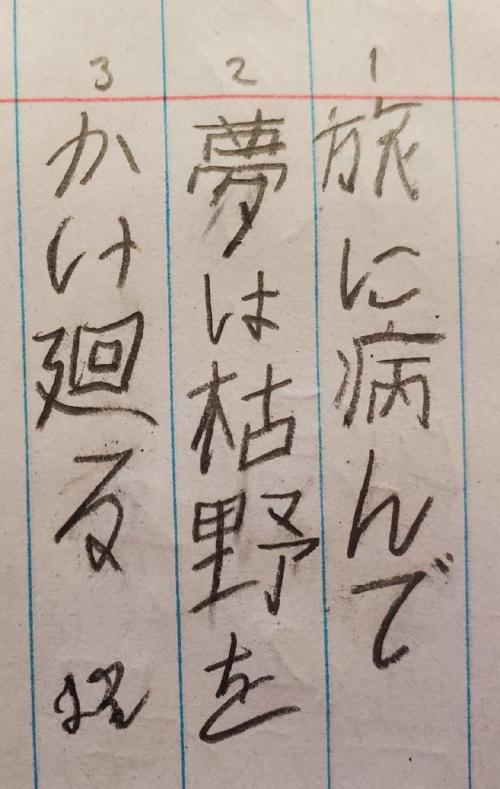 1
旅に病んで
2
夢は枯野を
3
かけ廻る